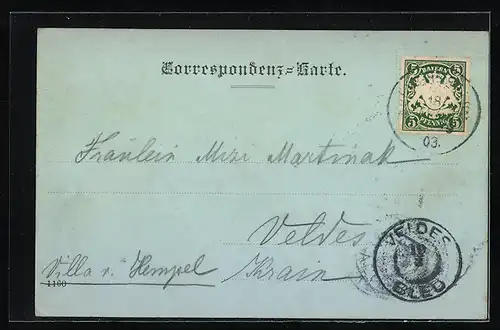 Correspondenz=Karte.
BAYERN
5 5
PFENNIG
18
03.
Fräulein Mizi Martinak
Veldes
Villa v. Hempel
Krain
1160
VELDES
BLED